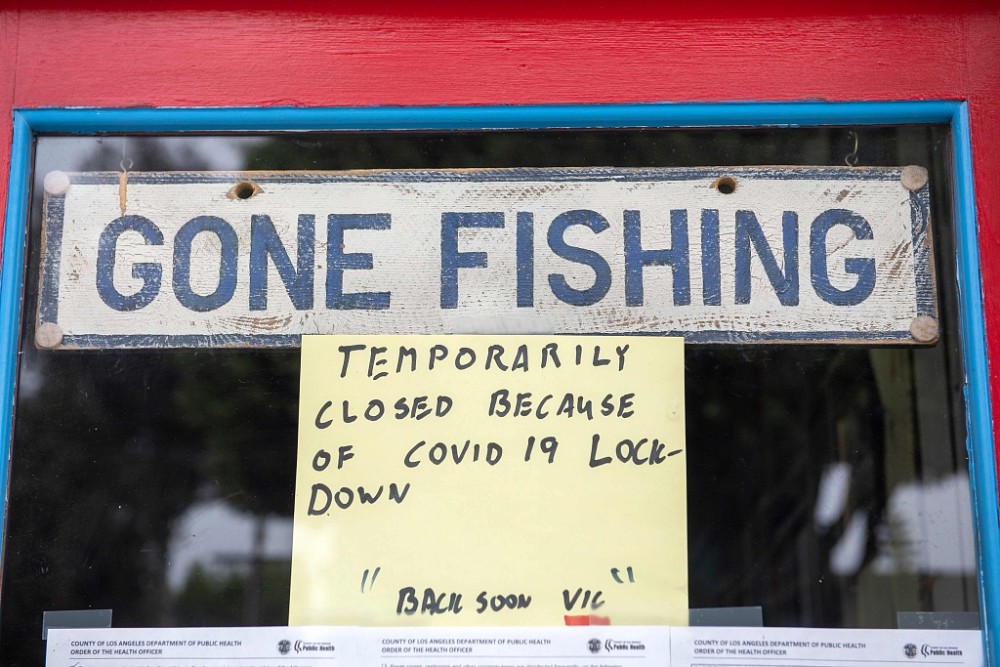 GONE FISHING
TEMPORARILY
CLOSED BECAUSE
OF COVID 19 LOCK-
DOWN
"BACK SOON VIC"
COUNTY OF LOS ANGELES DEPARTMENT OF PUBLIC HEALTH
ORDER OF THE HEALTH OFFICER
Public Health
COUNTY OF LOS ANGELES DEPARTMENT OF PUBLIC HEALTH
ORDER OF THE HEALTH OFFICER
Public Health
COUNTY OF LOS ANGELES DEPARTMENT OF PUBLIC HEALTH
ORDER OF THE HEALTH OFFICER
Public Health